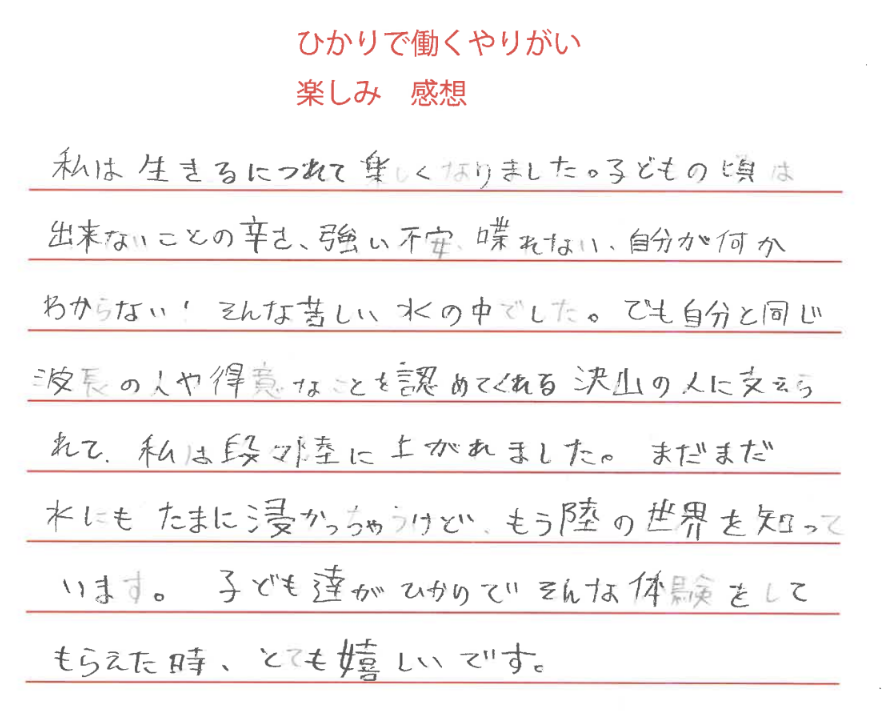 ひかりで働くやりがい
楽しみ　感想
私は生きるにつれて楽しくなりました。子どもの頃は
出来ないことの辛さ、強い不安、喋れない、自分が何か
わからない！そんな苦しい水の中でした。でも自分と同じ
波長の人や得意なことを認めてくれる沢山の人に支えら
れて、私は段々陸に上がれました。まだまだ
水にもたまに浸かっちゃうけど、もう陸の世界を知って
います。子ども達がひかりでそんな体験をして
もらえた時、とても嬉しいです。